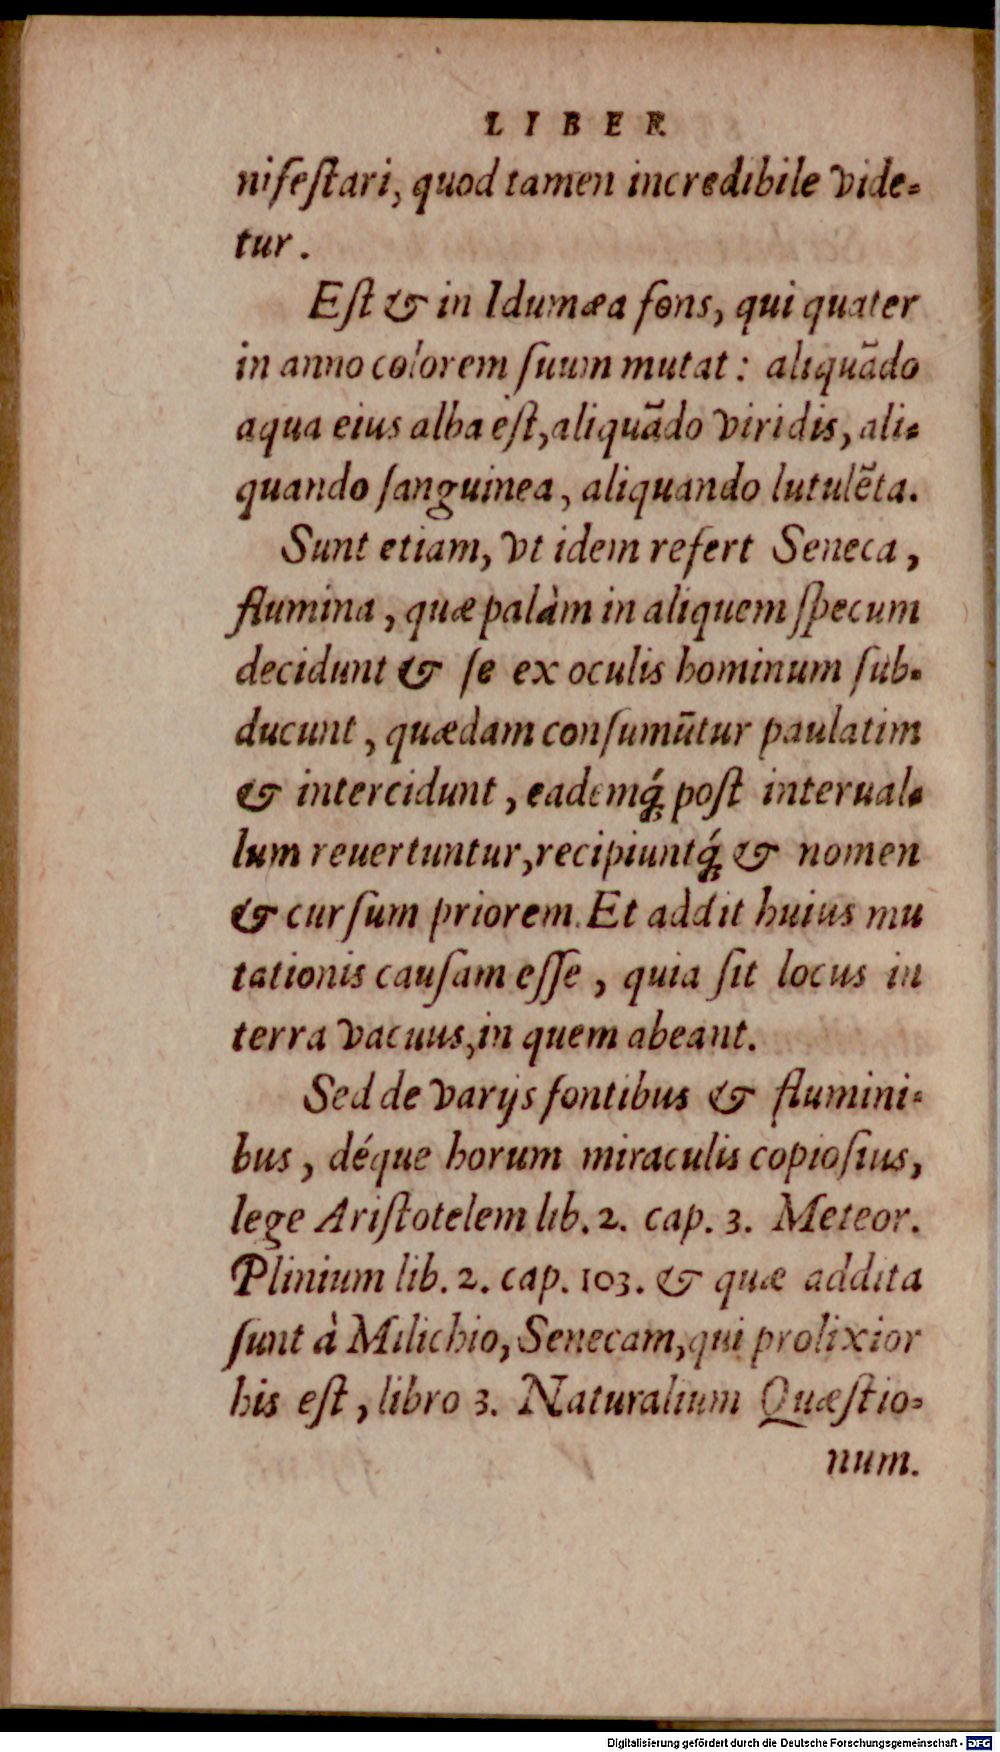 LIBER
nifeſtari, quod tamen incredibile vide-
tur.
Eſt & in Idumæa fons, qui quater
in anno colorem ſuum mutat: aliquādo
aqua eius alba eſt, aliquādo viridis, ali-
quando ſanguinea, aliquando lutulēta.
Sunt etiam, vt idem refert Seneca,
flumina, quæ palàm in aliquem ſpecum
decidunt & ſe ex oculis hominum ſub-
ducunt, quædam conſumūtur paulatim
& intercidunt, eademq́; poſt interual-
lum reuertuntur, recipiuntq́; & nomen
& curſum priorem. Et addit huius mu
tationis cauſam eſſe, quia ſit locus in
terra vacuus, in quem abeant.
Sed de varijs fontibus & flumini-
bus, déque horum miraculis copioſius,
lege Ariſtotelem lib. 2. cap. 3. Meteor.
Plinium lib. 2. cap. 103. & quæ addita
ſunt à Milichio, Senecam, qui prolixior
his eſt, libro 3. Naturalium Quæſtio-
num.
Digitalisierung gefördert durch die Deutsche Forschungsgemeinschaft - DFG